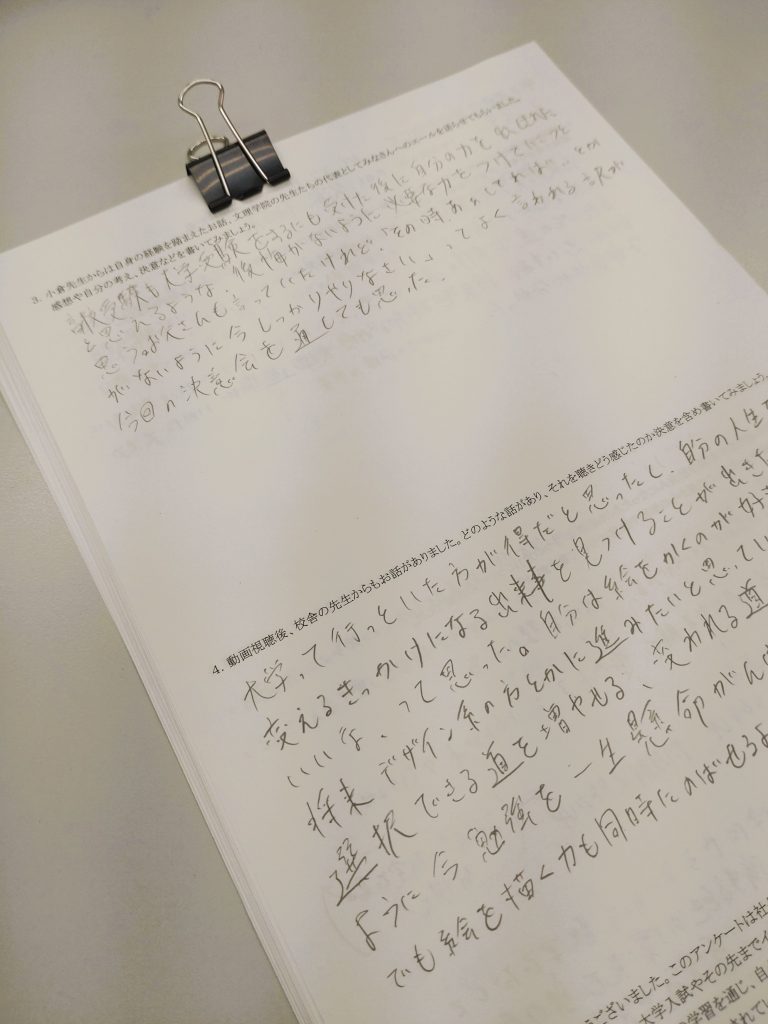 3. 小倉先生からは自身の経験を踏まえたお話、文理学院の先生たちの代表としてみなさんへのエールを送らせてもらいました。
感想や自分の考え、決意などを書いてみましょう。
高校受験も大学受験をするにも受けた後に自分の力を出せた
と思えるような、後悔がないように必要な力をつけて
思う。お父さんも言っていたけれど、「その時ああしてれば…とか
がないように今しっかりやりなさい」ってよく言われる訳が
今回の決意会を通しても思った。
4. 動画視聴後、校舎の先生からもお話がありました。どのような話があり、それを聴きどう感じたのか決意を含め書いてみましょう。
大学って行っといた方が得だと思ったし、自分の人生
変えるきっかけになる出来事を見つけることが出来た
いいな、って思った。自分は絵をかくのが好
将来デザイン系の方とかに進みたいと思ってい
選択できる道を増やせる、変われる道
ように今勉強を一生懸命がん
でも絵を描く力も同時にのばせるよ
ございました。このアンケートは社
大学入試やその先まで
学習を通じ、自
されてい